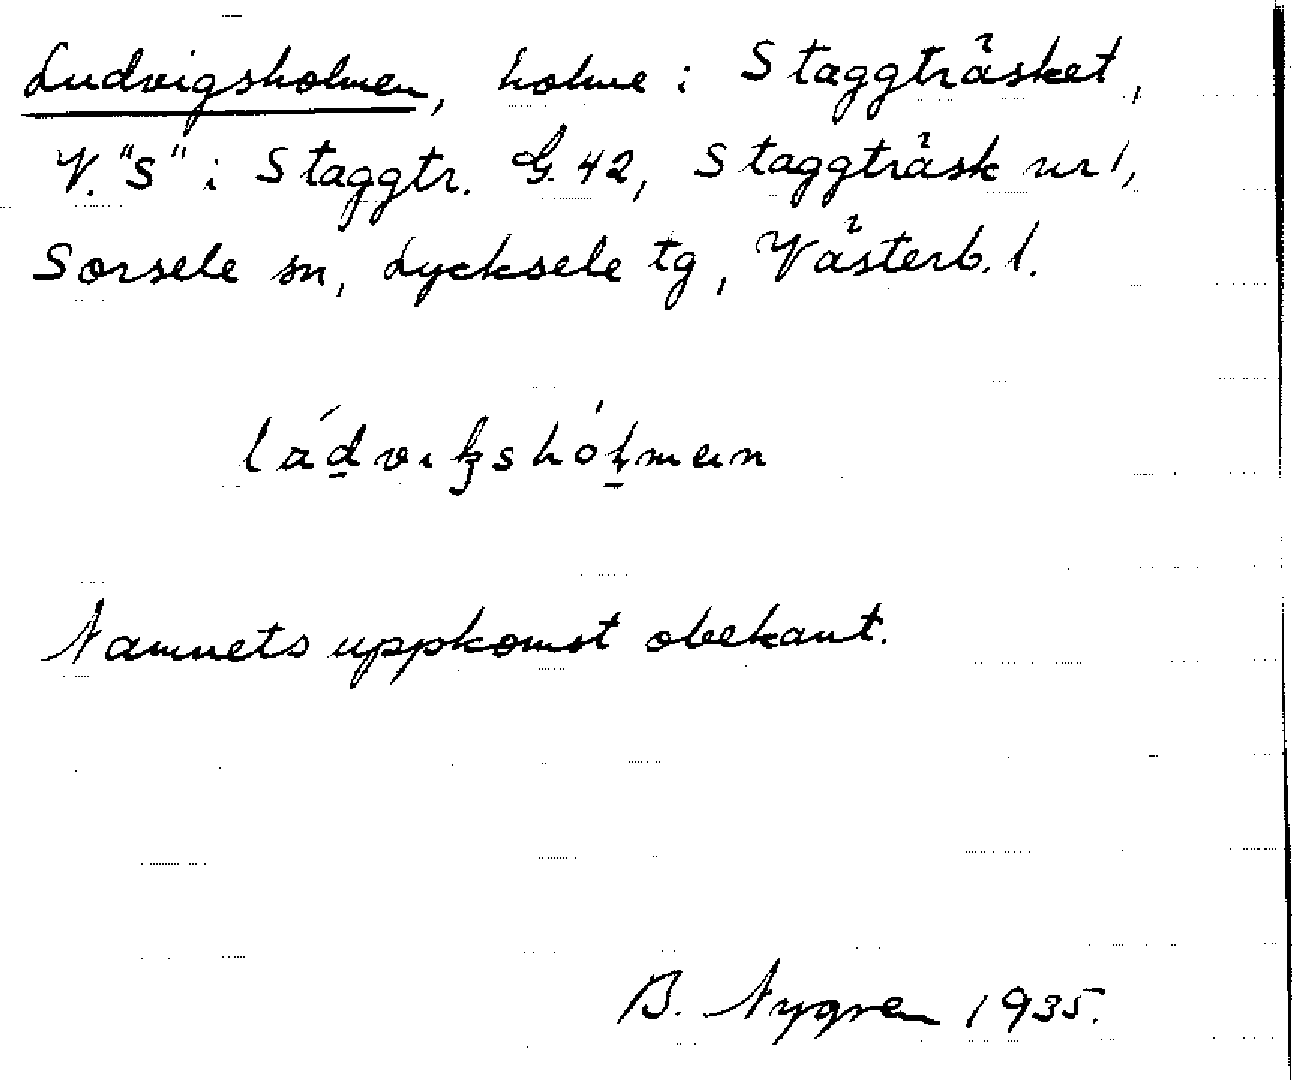 Ludvigsholmen, holme i Staggträsket,
V. "S" i Staggtr. G. 42, Staggträsk nr 1,
Sorsele sn, Lycksele tg, Västerb. l.
Namnets uppkomst obekant.
B. Nygren 1935.